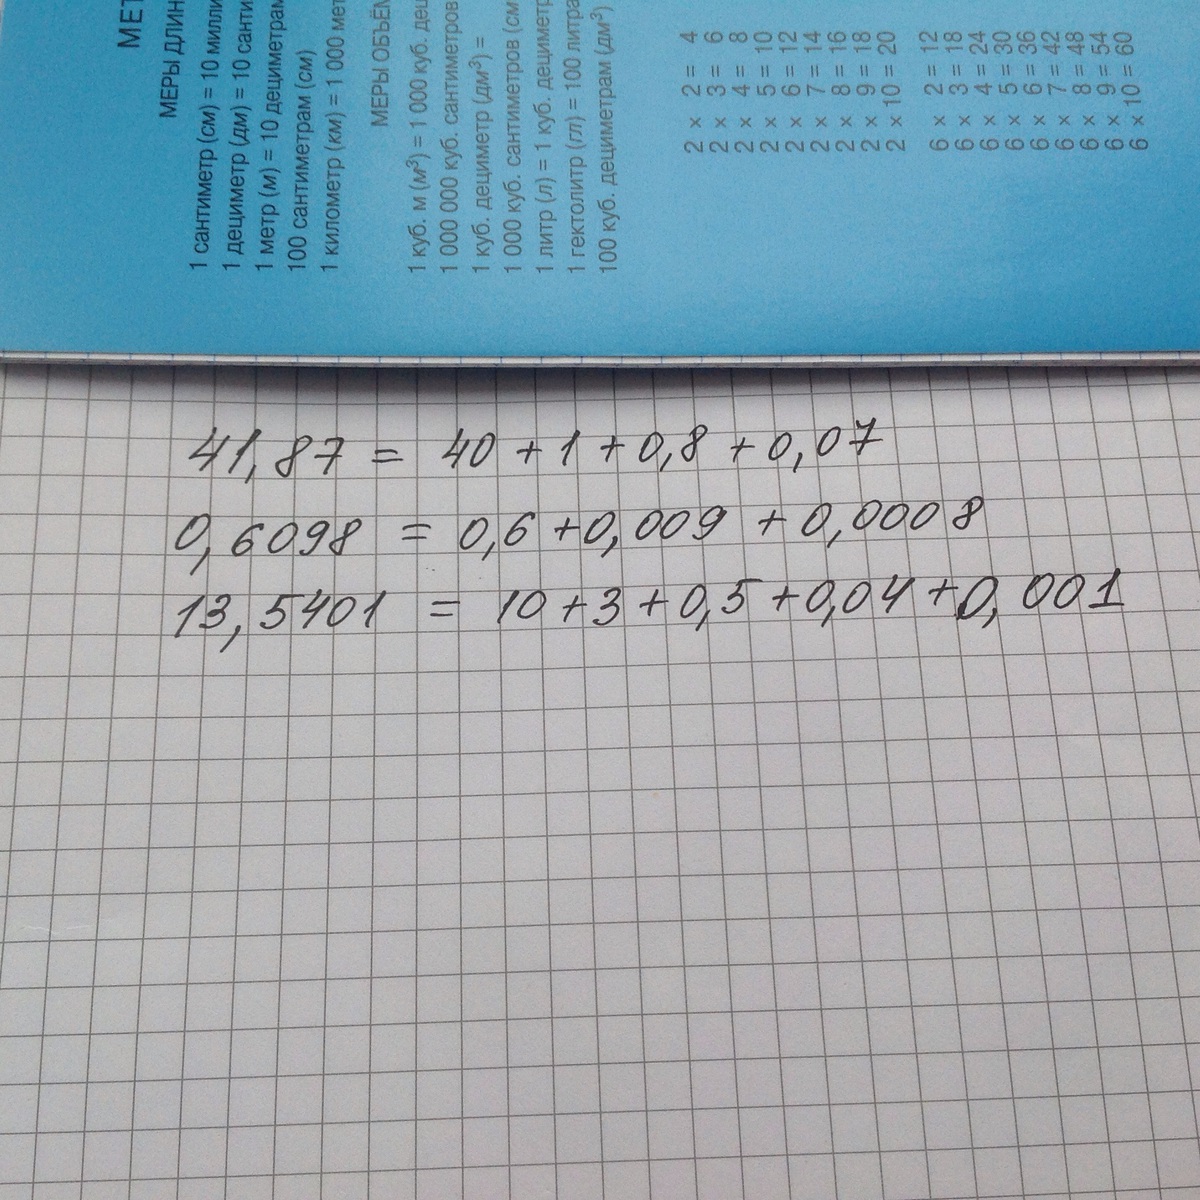 МЕТ
МЕРЫ ДЛИН
1 сантиметр (см) = 10 милли
1 дециметр (дм) = 10 санти
1 метр (м) = 10 дециметрам
100 сантиметрам (см)
1 километр (км) = 1 000 мет
МЕРЫ ОБЪЁМ
1 куб. м (м³) = 1 000 куб. дец
1 000 000 куб. сантиметров
1 куб. дециметр (дм³) =
1 000 куб. сантиметров (см
1 литр (л) = 1 куб. дециметр
1 гектолитр (гл) = 100 литра
100 куб. дециметрам (дм³)
2 × 2 = 4
2 × 3 = 6
2 × 4 = 8
2 × 5 = 10
2 × 6 = 12
2 × 7 = 14
2 × 8 = 16
2 × 9 = 18
2 × 10 = 20
6 × 2 = 12
6 × 3 = 18
6 × 4 = 24
6 × 5 = 30
6 × 6 = 36
6 × 7 = 42
6 × 8 = 48
6 × 9 = 54
6 × 10 = 60
41,87 = 40 + 1 + 0,8 + 0,07
0,6098 = 0,6 + 0,009 + 0,0008
13,5401 = 10 + 3 + 0,5 + 0,04 + 0,001